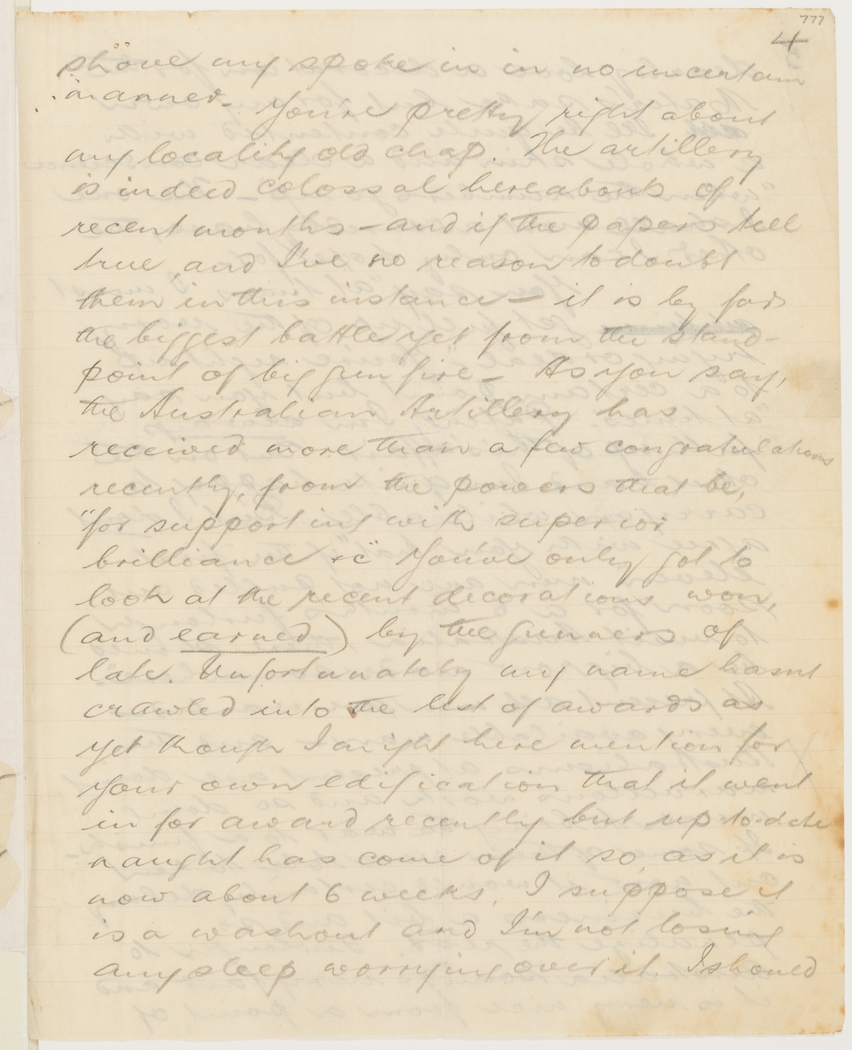 777
4
shove my spoke in in no uncertain
manner. You're pretty right about
my locality old chap. The artillery
is indeed colossal hereabouts of
recent months – and if the papers tell
true, and I've no reason to doubt
them in this instance – it is by far
the biggest battle yet from the stand-
point of big gun fire – As you say,
the Australian Artillery has
received more than a few congratulations
recently, from the powers that be,
"for supporting with superior
brilliance &c" You've only got to
look at the recent decorations won,
(and earned) by the gunners of
late. Unfortunately my name hasnt
crawled into the list of awards as
yet though I might here mention for
your own edification that it went
in for award recently but up to-date
naught has come of it so, as it is
now about 6 weeks, I suppose it
is a washout and I'm not losing
any sleep worrying over it. I should